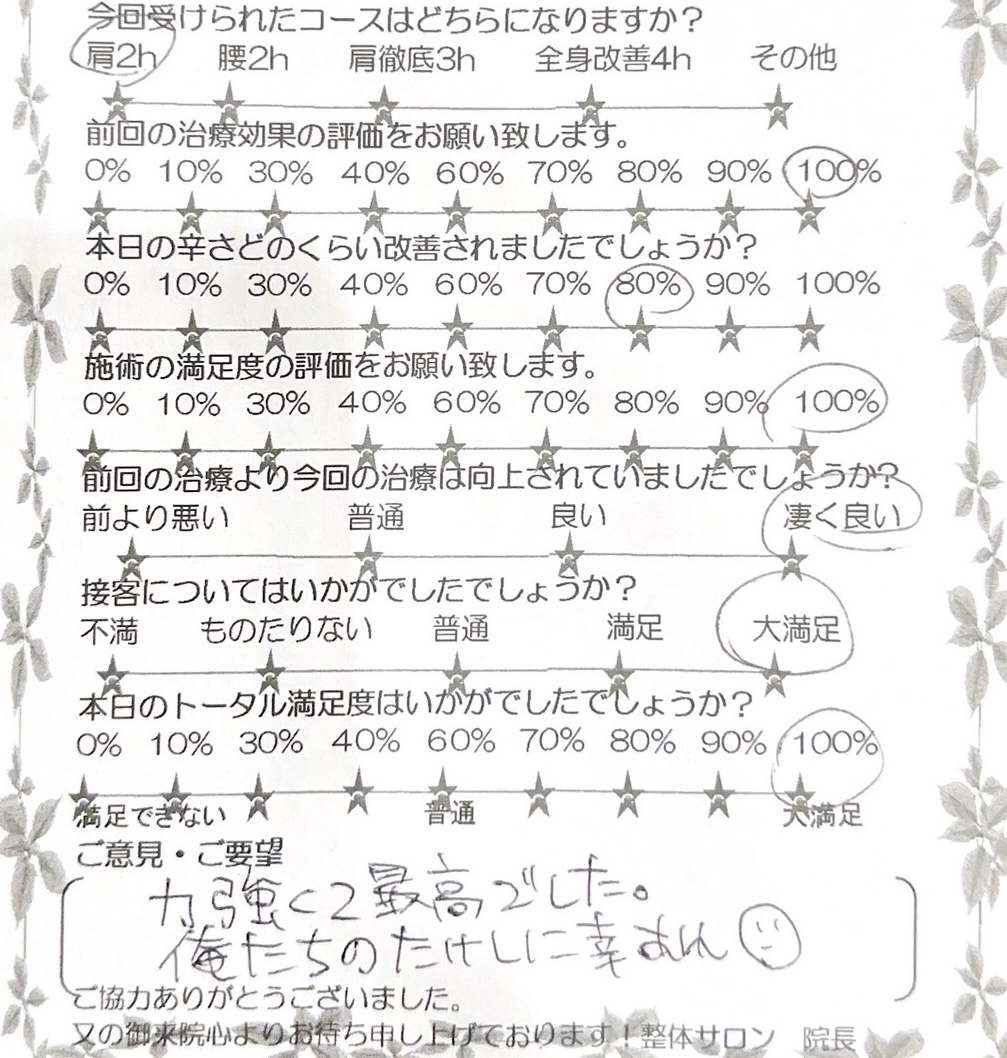 今回受けられたコースはどちらになりますか？
肩2h 腰2h 肩徹底3h 全身改善4h その他
前回の治療効果の評価をお願い致します。
0% 10% 30% 40% 60% 70% 80% 90% 100%
本日の辛さどのくらい改善されましたでしょうか？
0% 10% 30% 40% 60% 70% 80% 90% 100%
施術の満足度の評価をお願い致します。
0% 10% 30% 40% 60% 70% 80% 90% 100%
前回の治療より今回の治療は向上されていましたでしょうか？
前より悪い 普通 良い 凄く良い
接客についてはいかがでしたでしょうか？
不満 ものたりない 普通 満足 大満足
本日のトータル満足度はいかがでしたでしょうか？
0% 10% 30% 40% 60% 70% 80% 90% 100%
満足できない 普通 大満足
ご意見・ご要望
力強くて最高でした。
俺たちのたけしに幸あれ
ご協力ありがとうございました。
又の御来院心よりお待ち申し上げております！整体サロン 院長